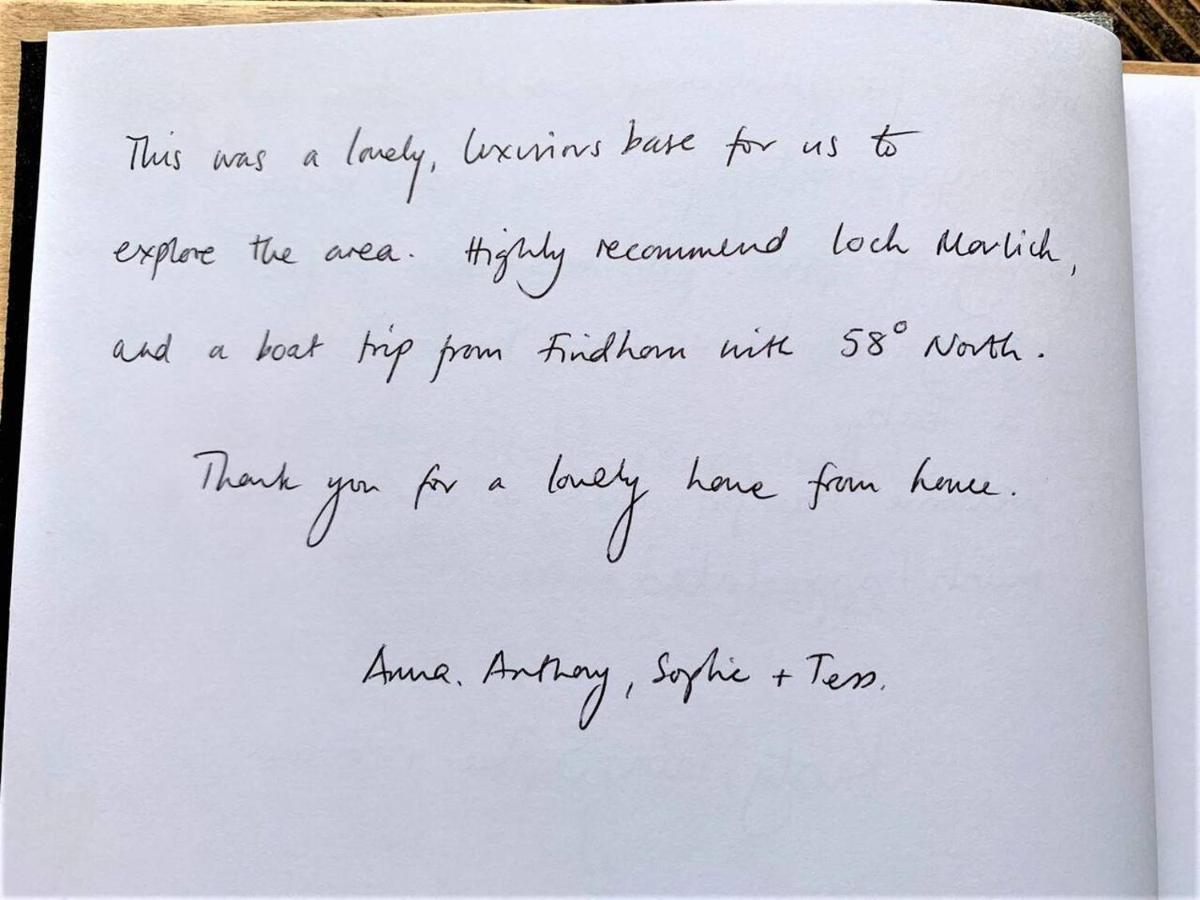 This was a lovely, luxurious base for us to
explore the area. Highly recommend Loch Morlich,
and a boat trip from Findhorn with 58° North.
Thank you for a lovely home from home.
Anna, Anthony, Sophie + Tess.